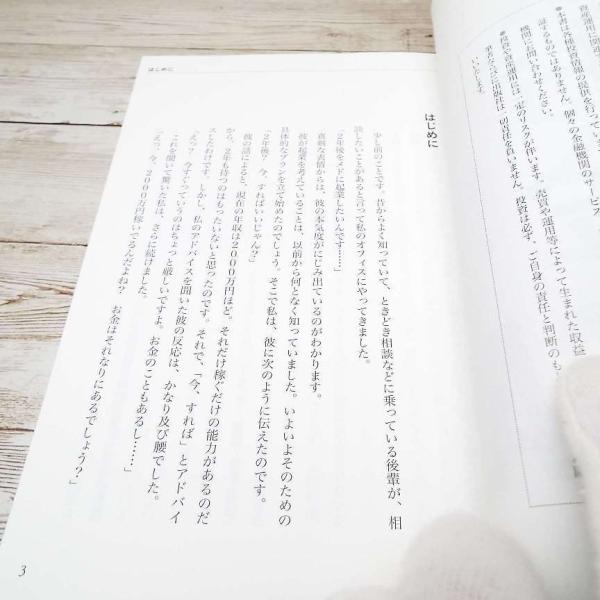 資産運用に関連
●本書は各種投資情報の提供を行ってい
証するものではありません。個々の金融機関のサービス
機関にお問い合わせください。
●投資や資産運用には一定のリスクが伴います。売買や運用等によって生まれた収益
筆者ならびに出版社は一切責任を負いません。投資は必ず、ご自身の責任と判断のも
いいたします。
はじめに
はじめに
少し前のことです。昔からよく知っていて、ときどき相談などに乗っている後輩が、相
談したいことがあると言って私のオフィスにやってきました。
「2年後をメドに起業したいんです……」
真剣な表情からは、彼の本気度がにじみ出ているのがわかります。
彼が起業を考えていることは、以前から何となく知っていました。いよいよそのための
具体的なプランを立て始めたのでしょう。そこで私は、彼に次のように伝えたのです。
「2年後？ 今、すればいいじゃん？」
彼の話によると、現在の年収は2000万円ほど。それだけ稼ぐだけの能力があるのだ
から、2年も待つのはもったいないと思ったのです。それで、「今、すれば」とアドバイ
スしたわけです。しかし、私のアドバイスを聞いた彼の反応は、かなり及び腰でした。
「えっ？ 今すぐっていうのはちょっと厳しいですよ。お金のこともあるし……」
これを聞いて驚いた私は、さらに続けました。
「えっ？ 今、2000万円稼いでるんだよね？ お金はそれなりにあるでしょう？」
3